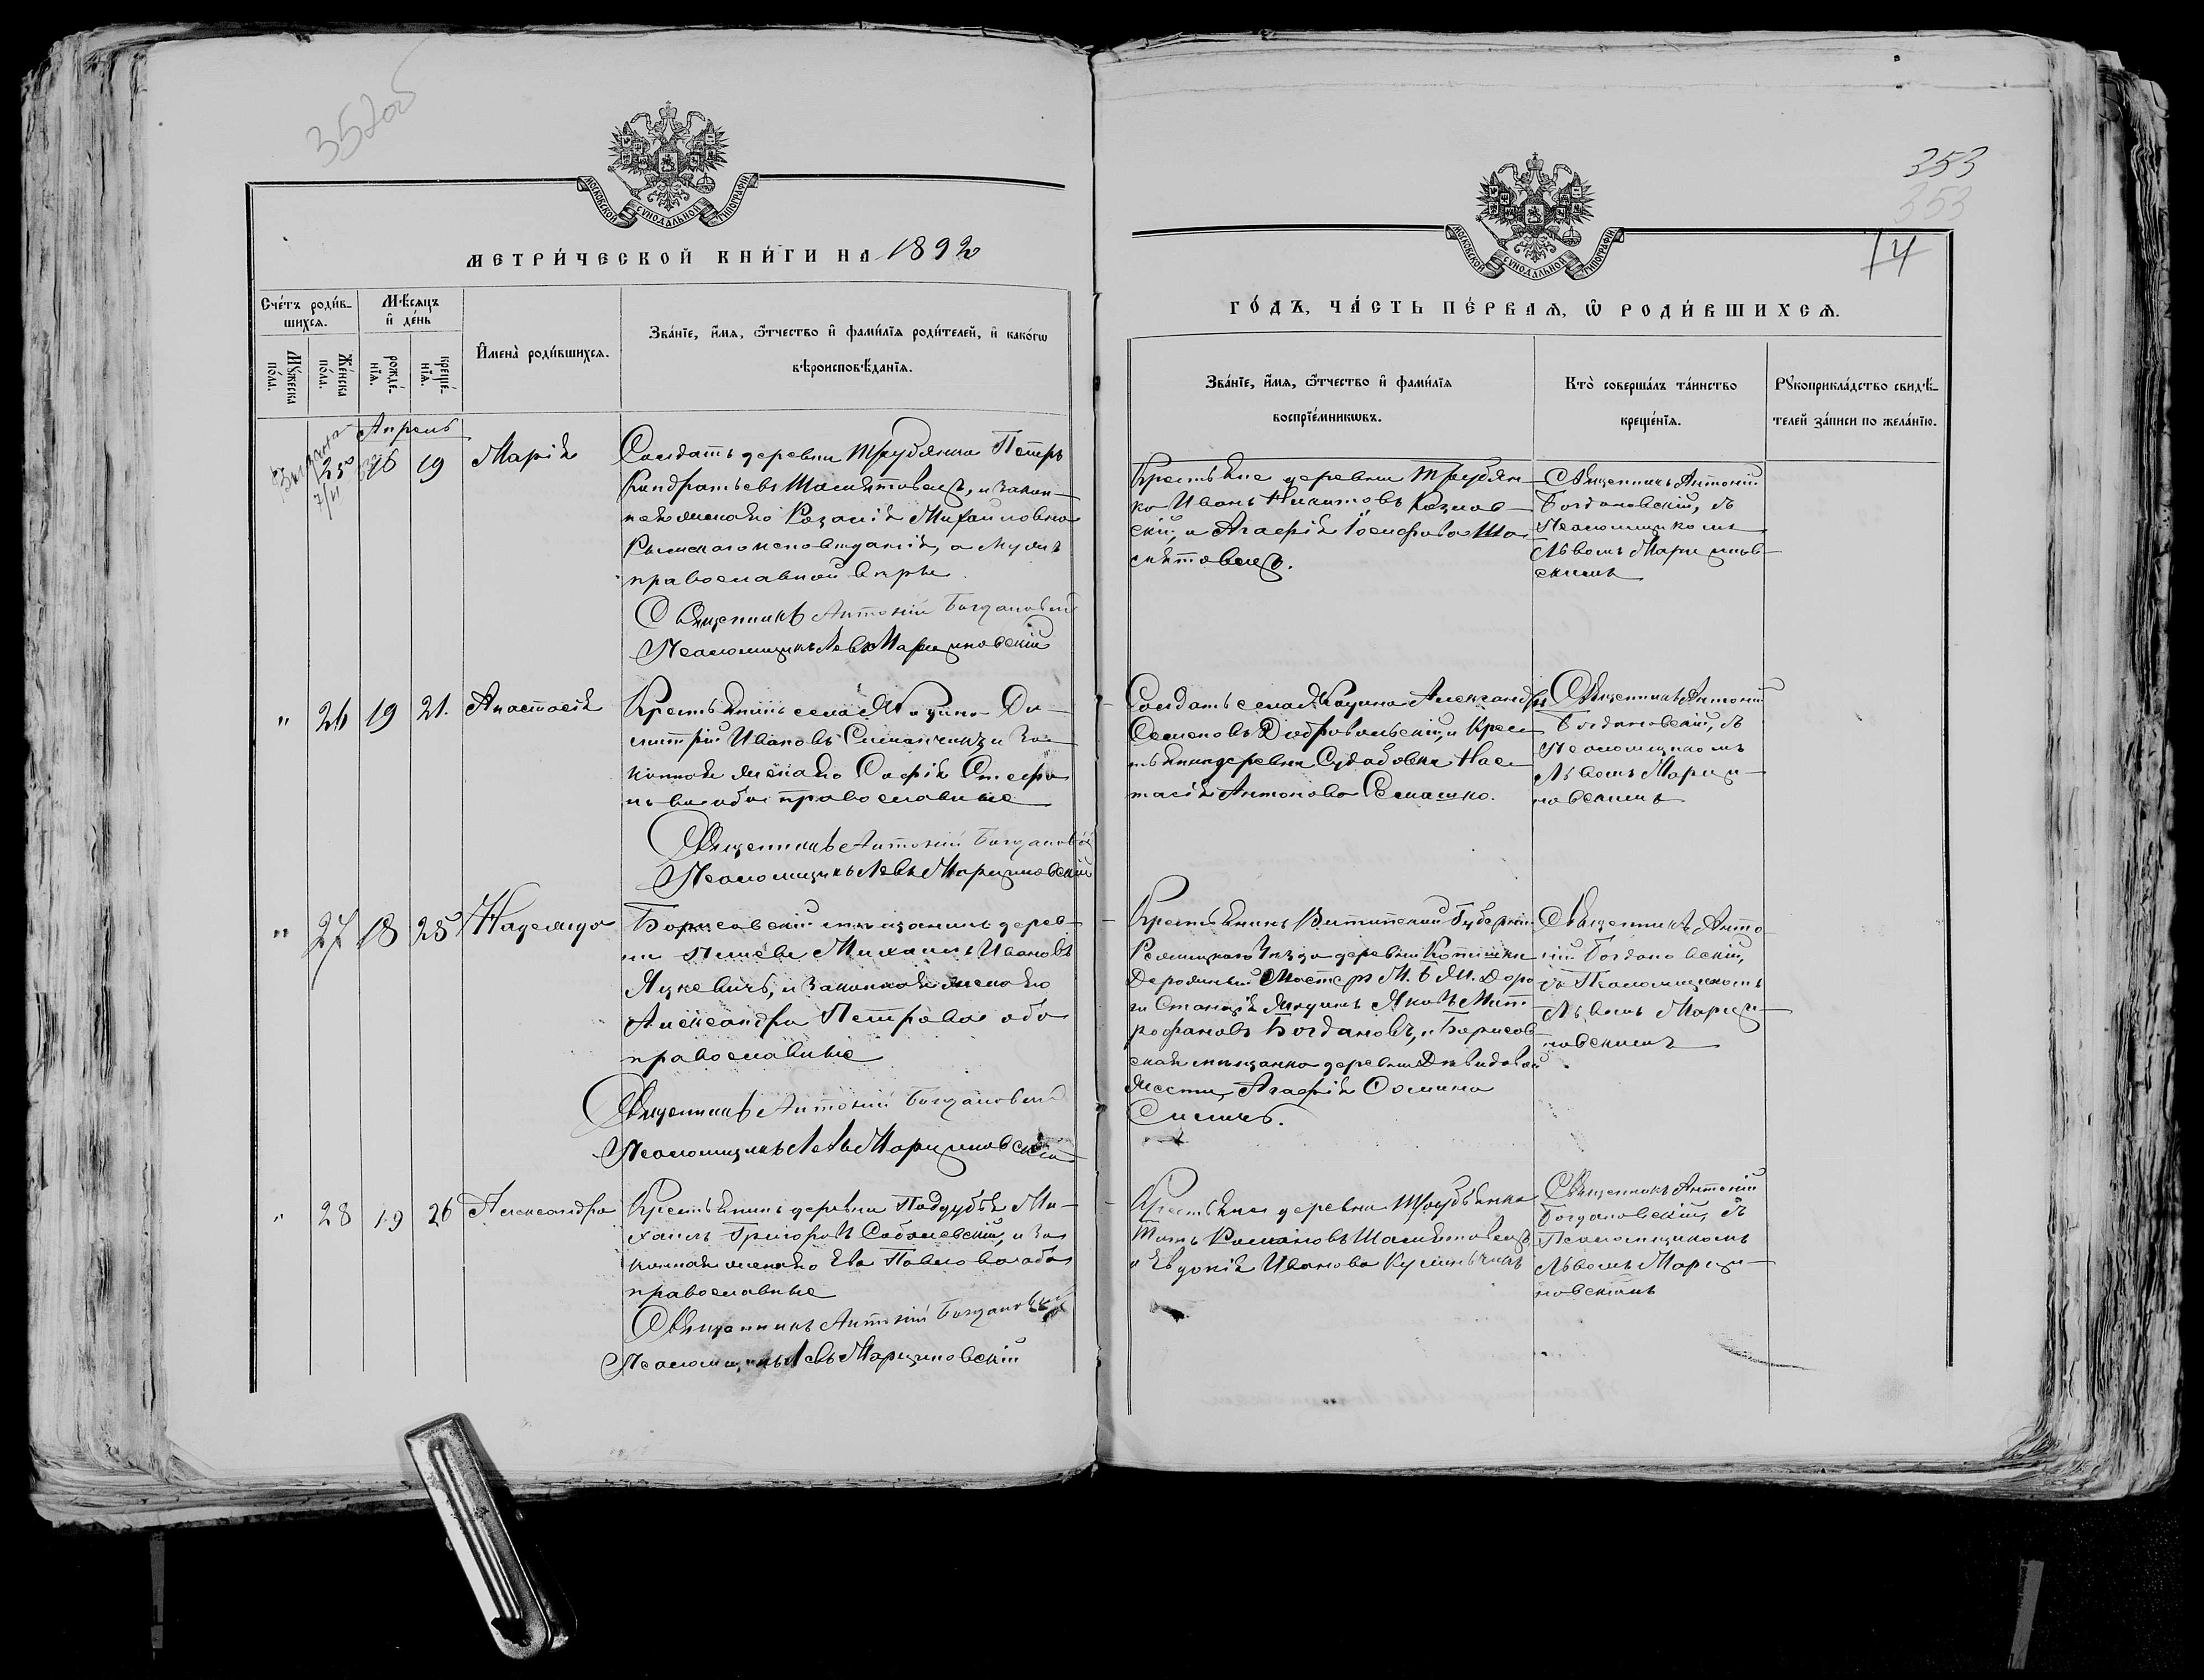 352об
МОСКОВСКОЙ СѴНОДАЛЬНОЙ ТИПОГРАФІИ
МЕТРИ́ЧЕСКОЙ КНИ́ГИ НА 1892
Сче́тъ роди́в-
шихся.
Мѣ́сяцъ
и де́нь
Мꙋ́жеска
по́ла.
Же́нска
по́ла.
рожде́-
нїя.
креще́-
нїя.
Имена̀ роди́вшихся.
Зва́нїе, и́мя, ѻ҆́тчество и фами́лїя роди́телей, и како́гѡ
вѣроисповѣ́данїя.
Апрель
25 16 19 Марія
7/II
Солдатъ деревни Трубянка Петръ
Кондратьевъ Шаметовецъ, и закон-
ная жена его Розалія Михайловна
Римскаго исповеданія, а мужъ
православной веры.
Священникъ Антоній Богдановскій
Псаломщикъ Левъ Марциновскій
" 26 19 21. Анастасія
Крестьянинъ села Ди-
митрій Ивановъ и за-
конная жена его Софія Стефа
нова оба православные
Священникъ Антоній Богдановскій
Псаломщикъ Левъ Марциновскій
" 27 18 25 Надежда
Борисовскій мещанинъ дерев-
ни Михаилъ Ивановъ
Яцкевичъ, и законная жена его
Александра Петрова оба
православные
Священникъ Антоній Богдановскій
Псаломщикъ Левъ Марциновскій
" 28 19 26 Александра
Крестьянинъ деревни Поддубье Ми-
хаилъ Григоровъ Соболевскій, и за
конная жена его Ева Павлова оба
православные
Священникъ Антоній Богдановскій
Псаломщикъ Левъ Марциновскій
353
353
14
МОСКОВСКОЙ СѴНОДАЛЬНОЙ ТИПОГРАФІИ
ГО́ДЪ, ЧА́СТЬ ПЕ́РВАЯ, Ѡ҆ РОДИ́ВШИХСЯ.
Зва́нїе, и́мя, ѻ҆́тчество и фами́лїя
воспрїе́мникѡвъ.
Кто̀ соверша́лъ та́инство
креще́нїя.
Рꙋкоприкла́дство свидѣ́-
телей за́писи по жела́нїю.
Крестьяне деревни Трубян-
ка Иванъ Никитовъ Козлов-
скій, и Агафія Іосифова Ша-
метовецъ.
Священникъ Антоній
Богдановскій, съ
Псаломщикомъ
Львомъ Марцинов-
скимъ
Солдатъ села Александръ
Семеновъ Добровольскій, и Крес-
тьянка деревни Судобовка Нас-
тасія Антонова Семашко.
Священникъ Антоній
Богдановскій, съ
Псаломщикомъ
Львомъ Марци-
новскимъ
Крестьянинъ Витебской Губерніи
Режицкаго Уезда деревни
Дорожный Мастеръ М. Б. Ж. Доро
ги Станціи Яковъ Мит-
рофановъ Богдановъ, и Борисов-
ская мещанка деревни
Агафія Фомина
Священникъ Анто
ній Богдановскій,
съ Псаломщикомъ
Львомъ Марци-
новскимъ
Крестьяне деревни Трубянка
Титъ Романовъ Шаметовецъ,
и Евдокія Иванова
Священникъ Антоній
Богдановскій, съ
Псаломщикомъ
Львомъ Марци-
новскимъ